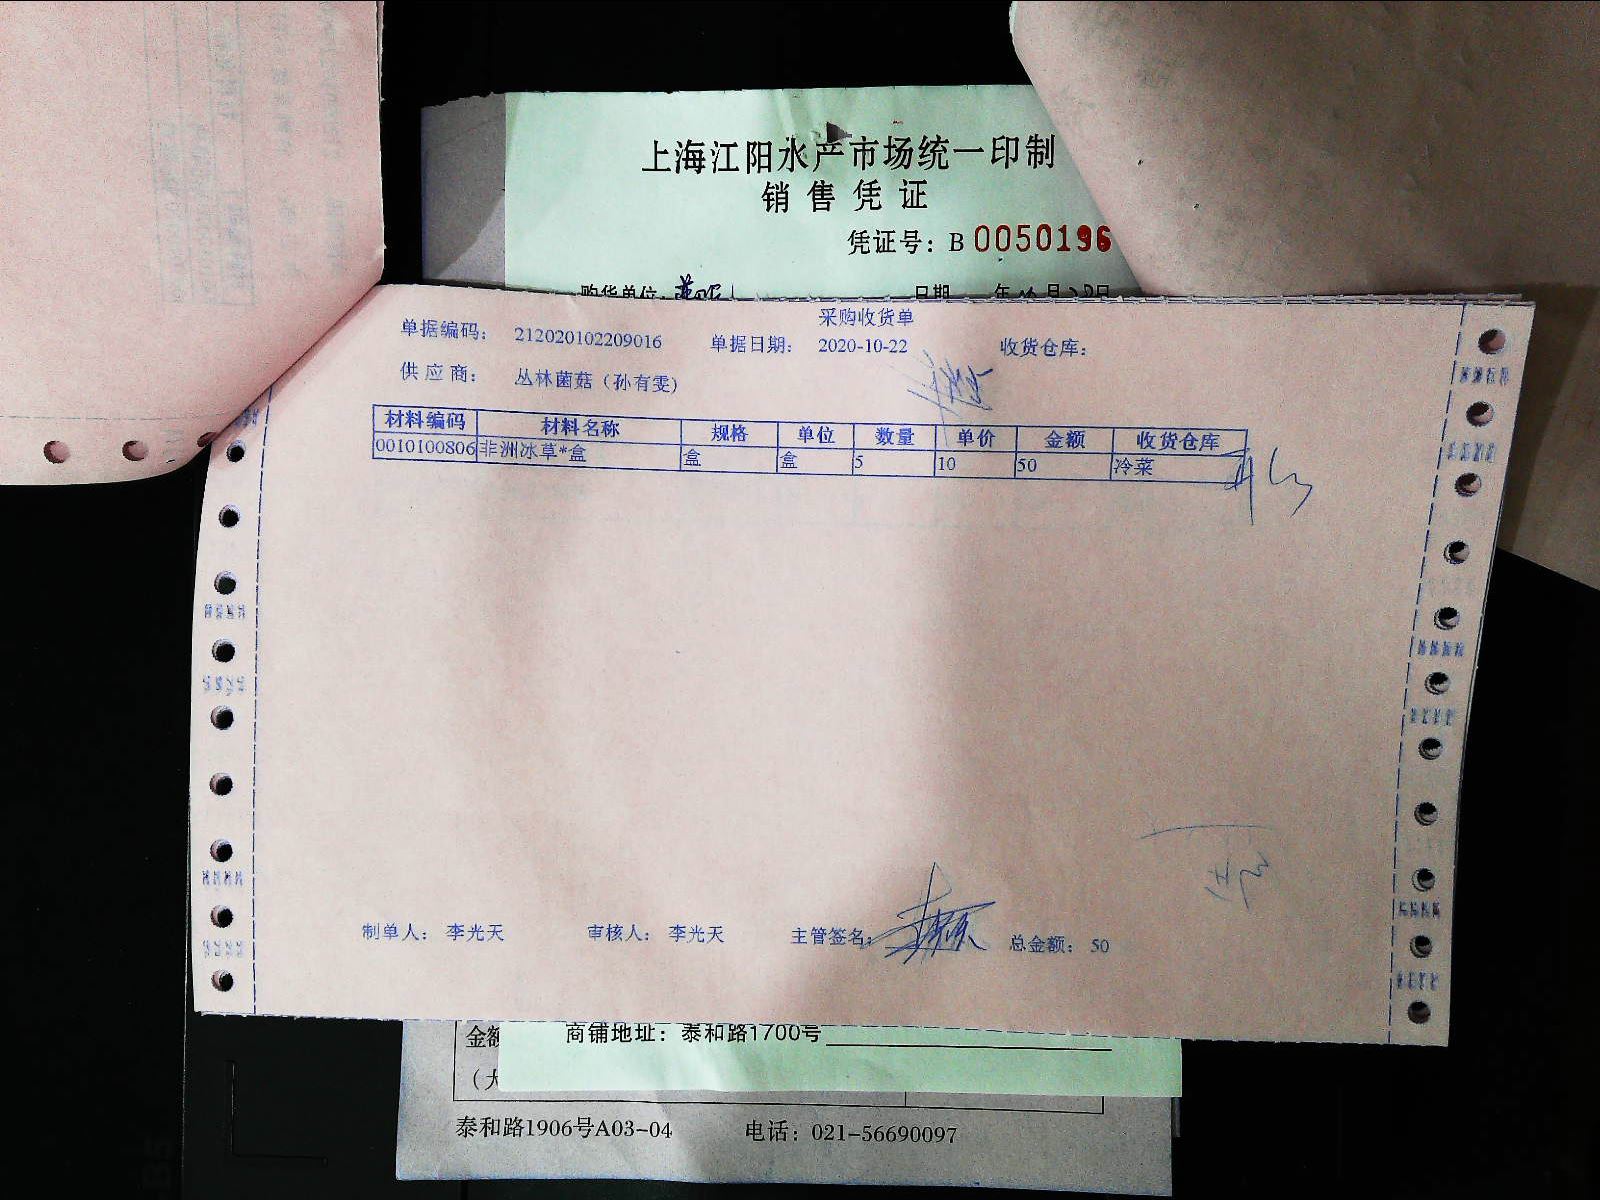 上海江阳水产市场统一印制
销售凭证
凭证号：B 0050196
购货单位： 日期 年10月22日
采购收货单
单据编码： 212020102209016 单据日期： 2020-10-22 收货仓库：
供应商： 丛林菌菇（孙有雯）
材料编码 材料名称 规格 单位 数量 单价 金额 收货仓库
0010100806 非洲冰草*盒 盒 盒 5 10 50 冷菜
制单人： 李光天 审核人： 李光天 主管签名： 总金额： 50
金额 商铺地址：泰和路1700号
（大
泰和路1906号A03-04 电话：021-56690097